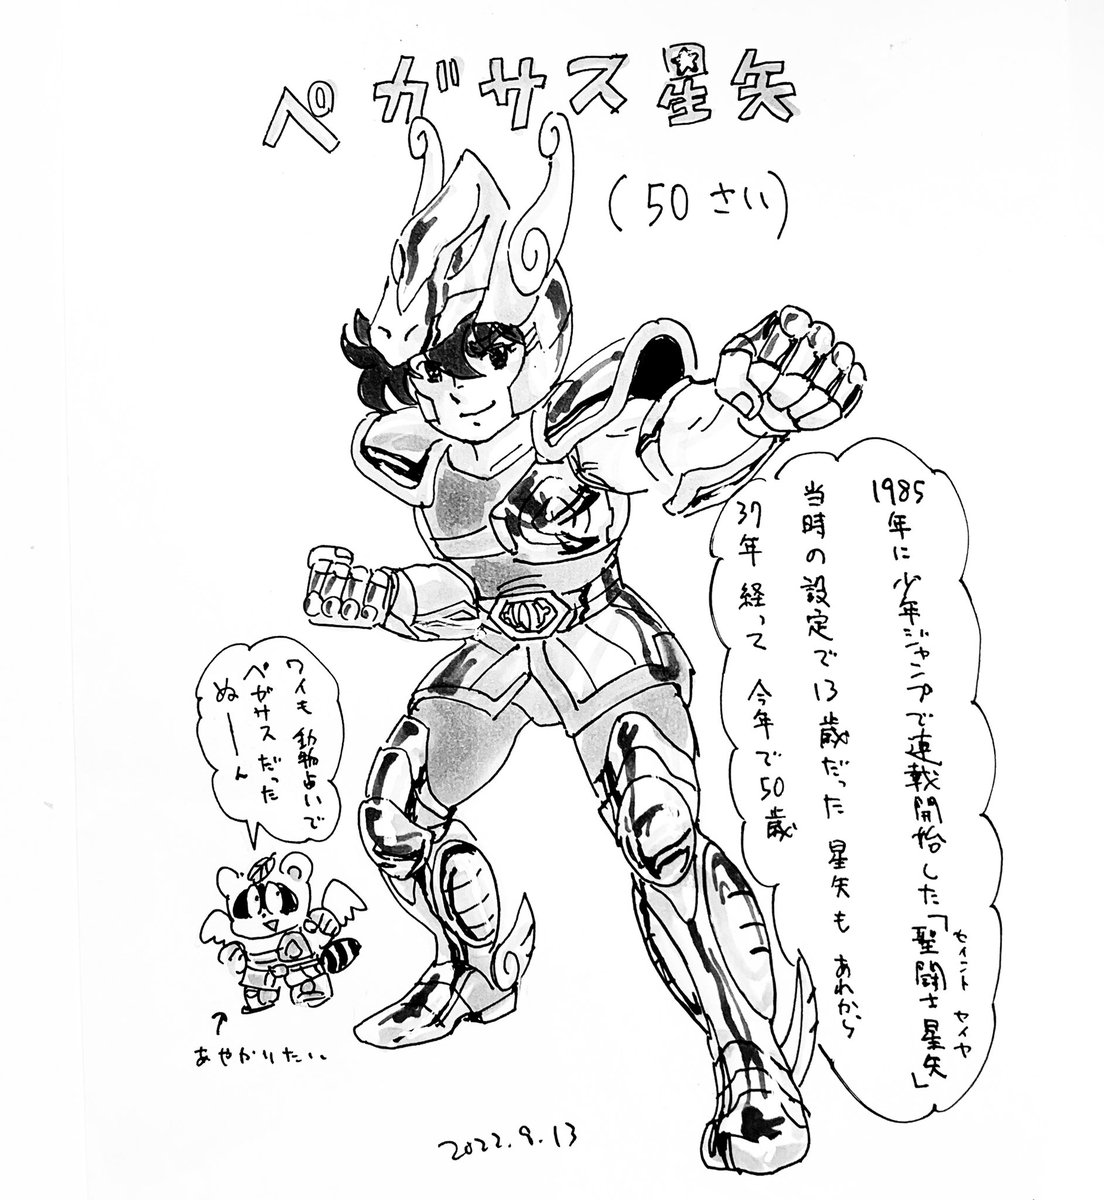 ペガサス星矢
(50さい)
1985年に少年ジャンプで連載開始した「聖闘士星矢」
セイント セイヤ
当時の設定で13歳だった 星矢も あれから
37年経って 今年で50歳
ワイも 動物占いで
ペガサスだった
ぬーーん
↑
あやかりたい
2022.9.13